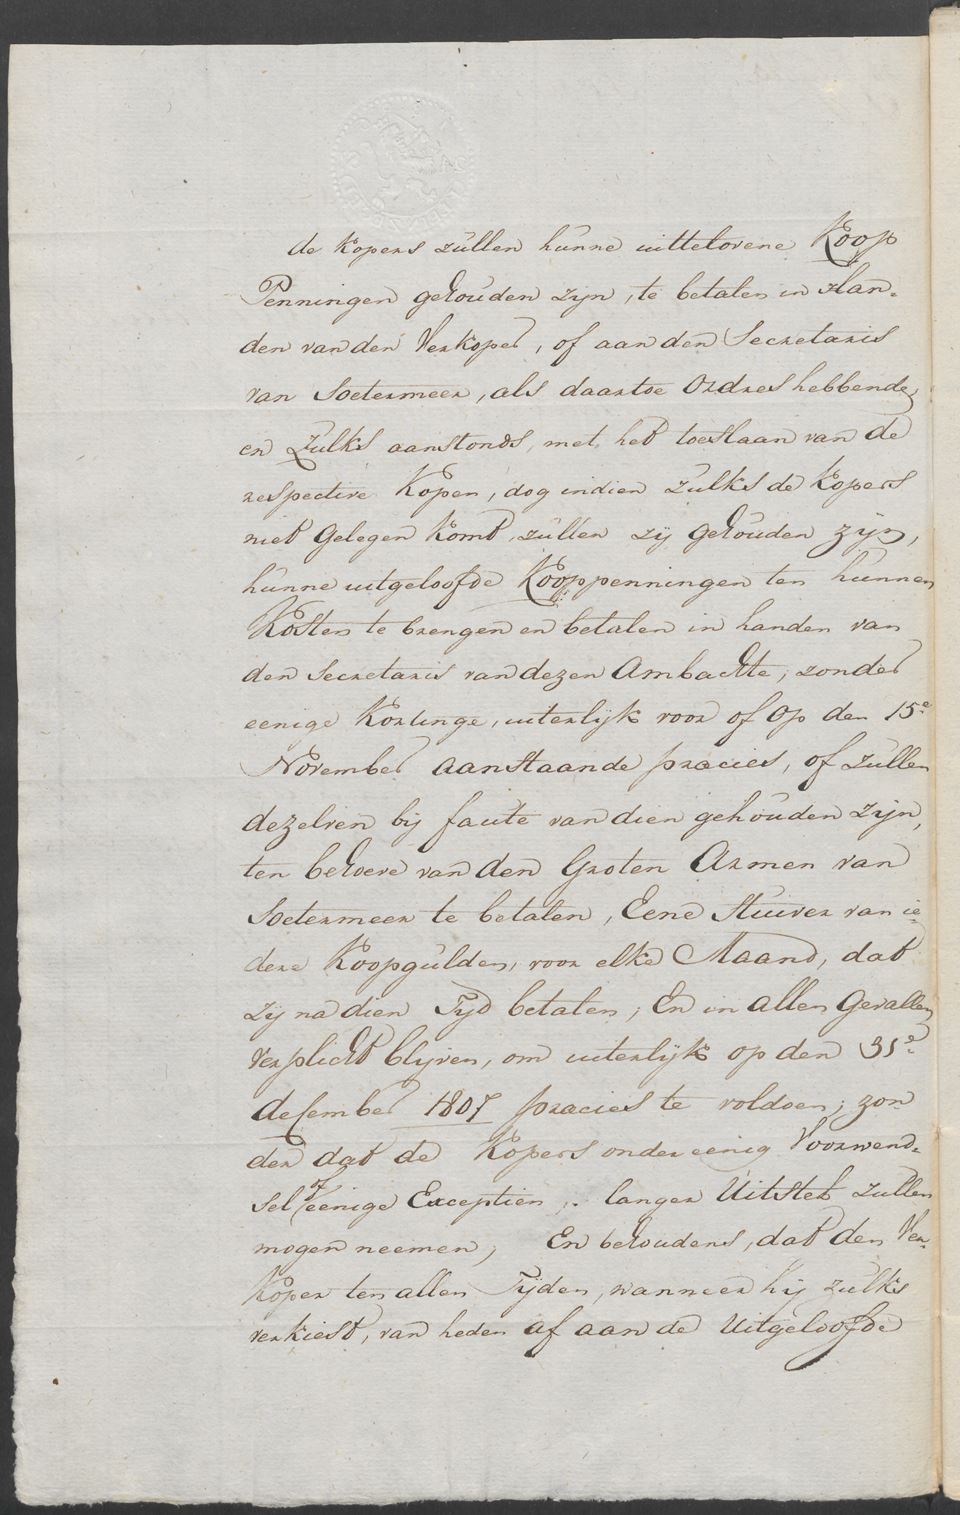 de Kopers zullen hunne uitteloven Koop
Penningen gehouden zijn, te betalen in Han-
den van den Verkoper, of aan den Secretaris
van Soetermeer, als daartoe Ordres hebbende,
en Zulks aanstonds, met het toeslaan van de
respective Kopen, dog indien Zulks de Kopers
niet Gelegen Komt, zullen zij gehouden zijn,
hunne uitgeloofde Kooppenningen ten hunnen
Kosten te brengen en betalen in handen van
den Secretaris van dezen Ambachte, zonder
eenige Kortinge, uiterlijk voor of op den 15e
November aanstaande precies, of zullen
dezelven bij faute van dien gehouden zijn,
ten behoeve van den Groten Armen van
Soetermeer te betalen, Eene Stuiver van ie-
dere Koopgulden, voor elke Maand, dat
zij na dien Tijd betalen; En in allen Gevallen
verplicht blijven, om uiterlijk op den 31e
december 1807 precies te voldoen, zon
der dat de Kopers onder eenig Voorwend-
sel of eenige Exceptien, langer Uitstel zullen
mogen neemen; En behoudens, dat den Ver-
Koper ten allen Tijden, wanneer hij zulks
verkiest, van heden af aan de Uitgeloofde